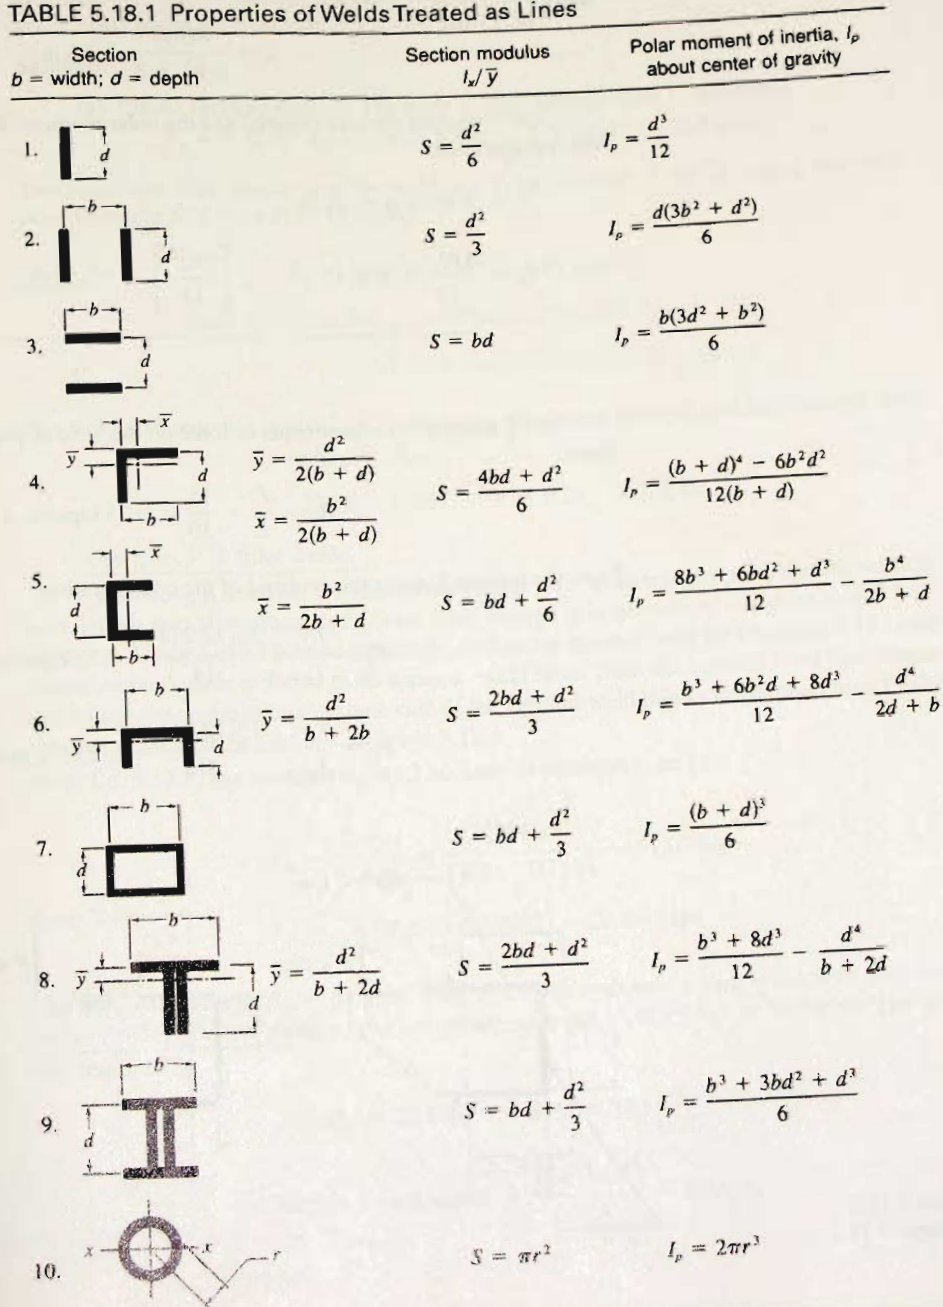 TABLE 5.18.1 Properties of Welds Treated as Lines
Section
b = width; d = depth
Section modulus
I_x/ȳ
Polar moment of inertia, I_p
about center of gravity
1. d S = d²/6 I_p = d³/12
2. b d S = d²/3 I_p = d(3b² + d²)/6
3. b d S = bd I_p = b(3d² + b²)/6
4. x̄ ȳ d b ȳ = d²/2(b + d) x̄ = b²/2(b + d) S = (4bd + d²)/6 I_p = ((b + d)⁴ − 6b²d²)/12(b + d)
5. x̄ d b x̄ = b²/(2b + d) S = bd + d²/6 I_p = (8b³ + 6bd² + d³)/12 − b⁴/(2b + d)
6. b ȳ d ȳ = d²/(b + 2b) S = (2bd + d²)/3 I_p = (b³ + 6b²d + 8d³)/12 − d⁴/(2d + b)
7. b d S = bd + d²/3 I_p = (b + d)³/6
8. b ȳ d ȳ = d²/(b + 2d) S = (2bd + d²)/3 I_p = (b³ + 8d³)/12 − d⁴/(b + 2d)
9. b d S = bd + d²/3 I_p = (b³ + 3bd² + d³)/6
10. x x r S = πr² I_p = 2πr³